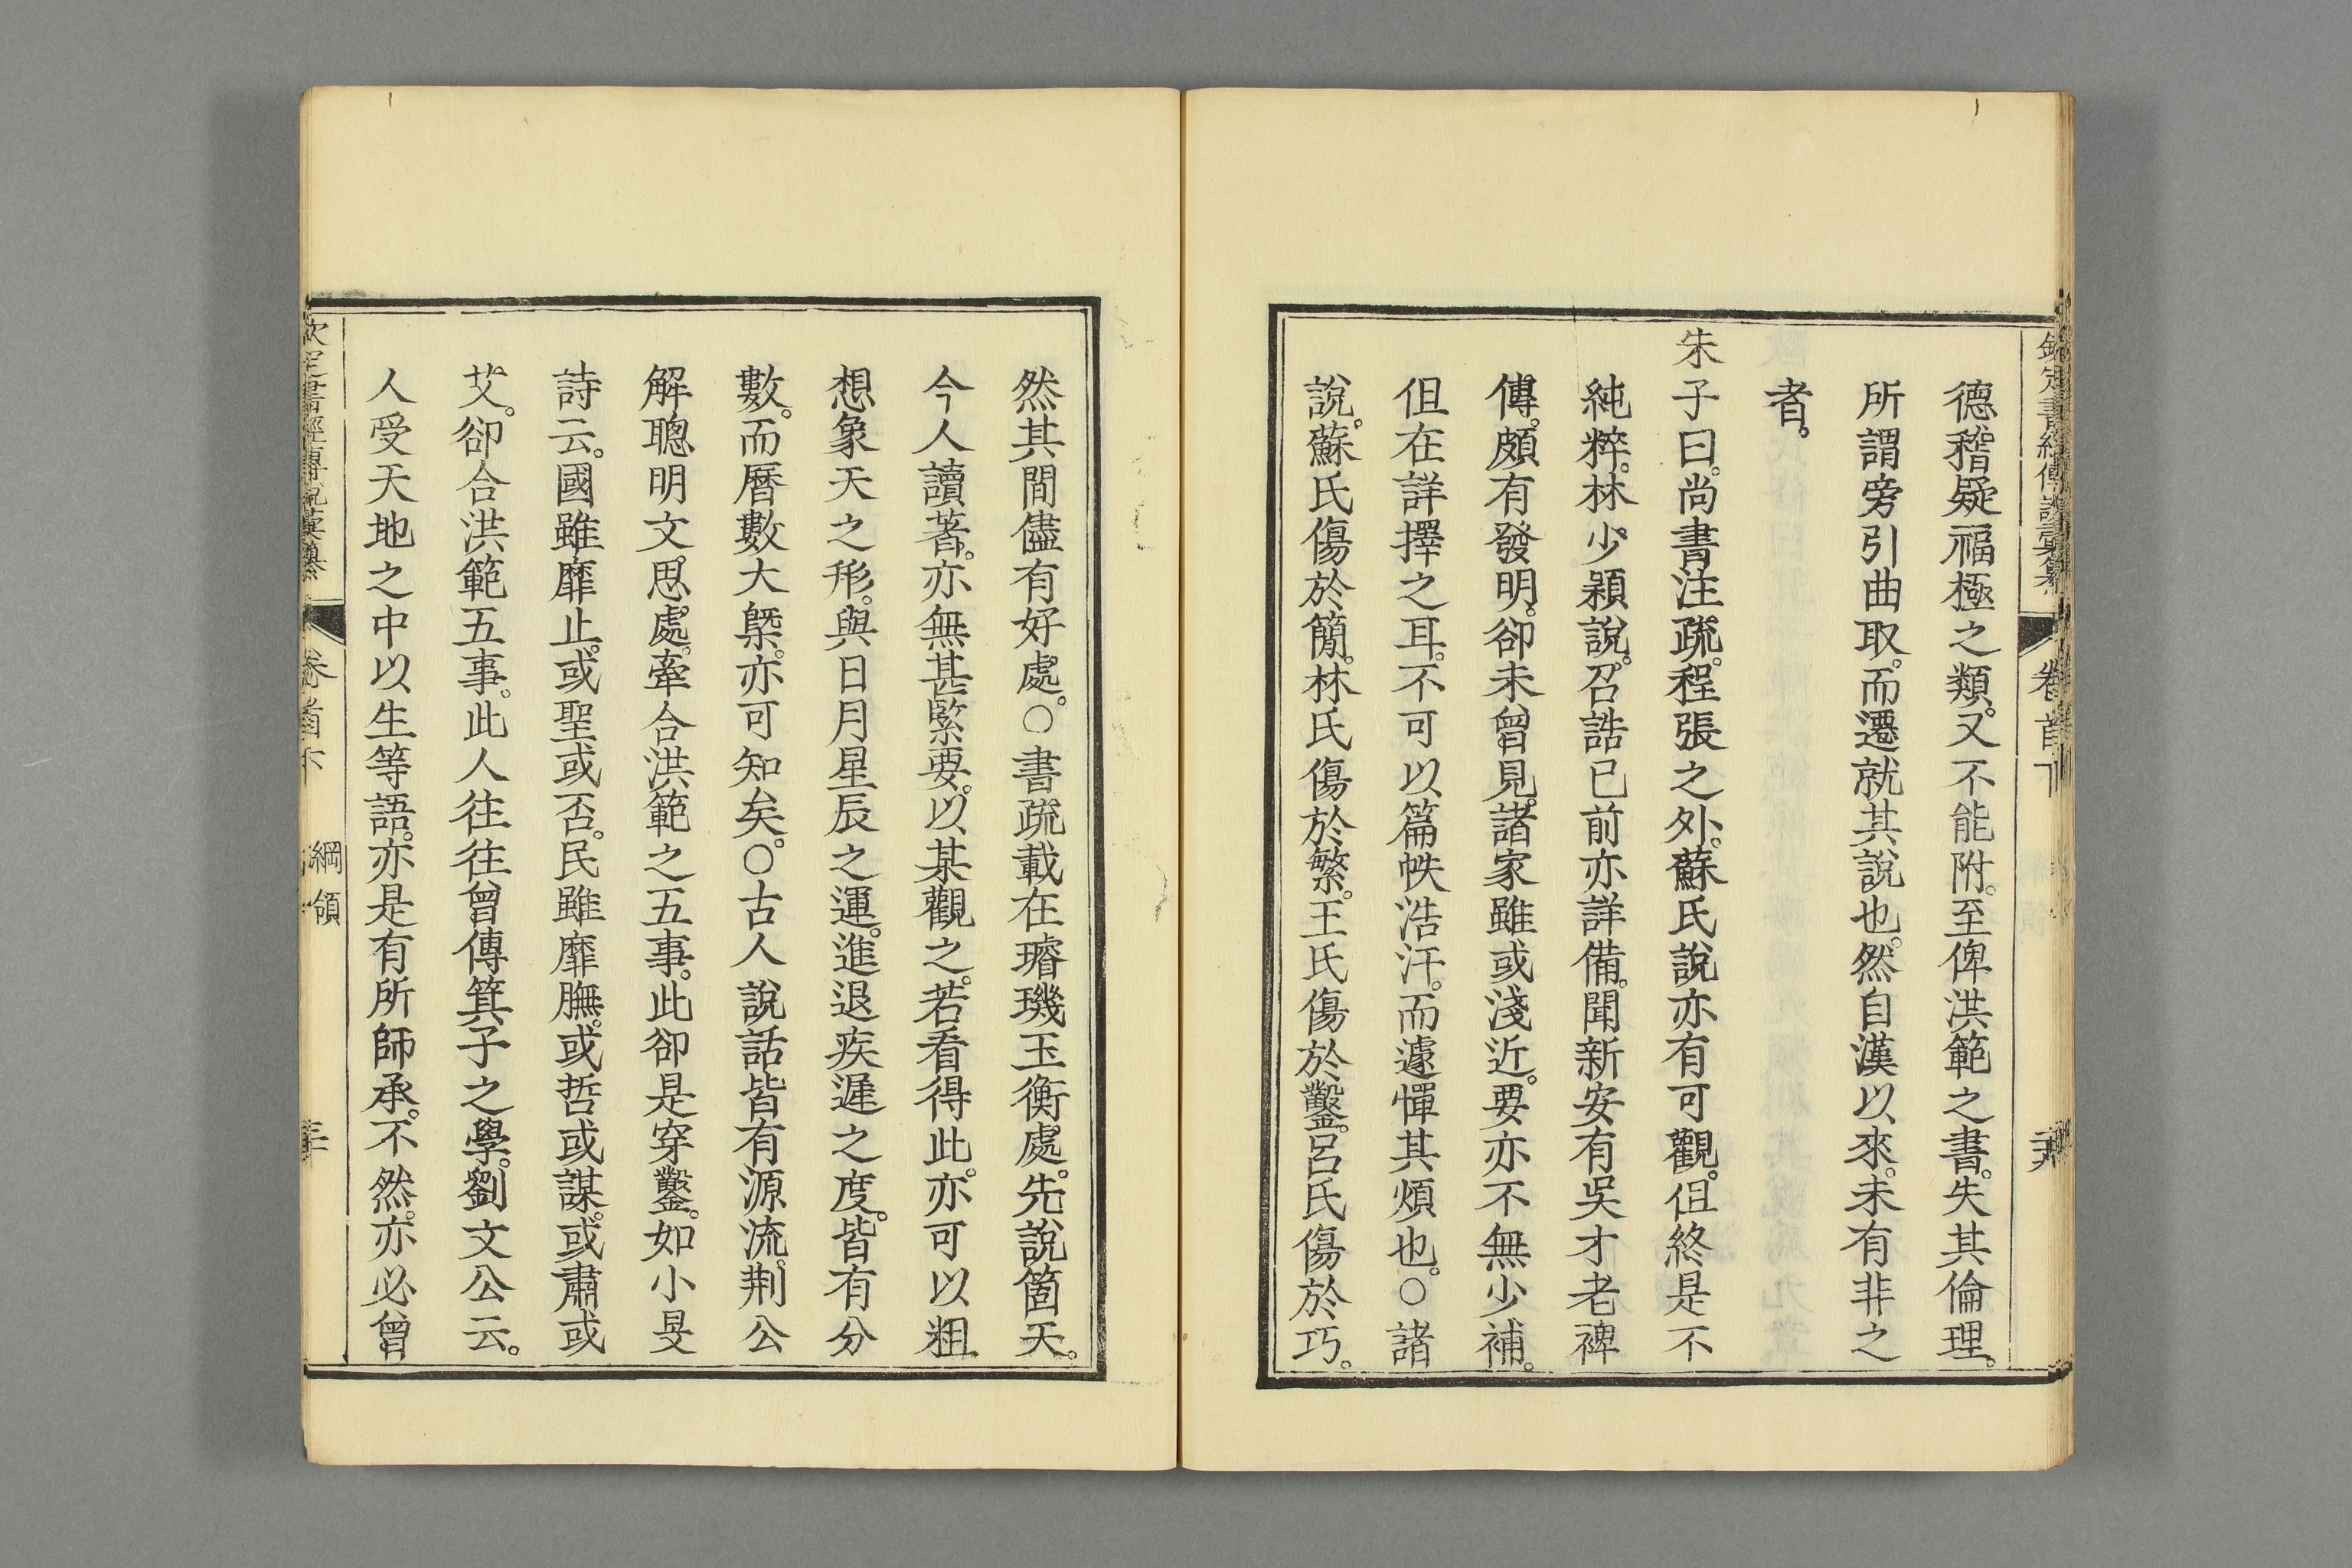 欽定書經傳說彙纂 卷首下
德稽疑福極之類。又不能附。至俾洪範之書。失其倫理。
所謂旁引曲取。而遷就其說也。然自漢以來。未有非之
者。
朱子曰。尚書注疏。程張之外。蘇氏說亦有可觀。但終是不
純粹。林少穎說。召誥已前亦詳備。聞新安有吳才老裨
傳。頗有發明。卻未曾見。諸家雖或淺近。要亦不無少補。
但在詳擇之耳。不可以篇帙浩汗。而遽憚其煩也。○諸
說。蘇氏傷於簡。林氏傷於繁。王氏傷於鑿。呂氏傷於巧。
然其間儘有好處。○書疏載在璿璣玉衡處。先說箇天。
今人讀著。亦無甚緊要。以某觀之。若看得此。亦可以粗
想象天之形。與日月星辰之運。進退疾遲之度。皆有分
數。而曆數大槩。亦可知矣。○古人說話皆有源流。荆公
解聰明文思處。牽合洪範之五事。此卻是穿鑿。如小旻
詩云。國雖靡止。或聖或否。民雖靡膴。或哲或謀。或肅或
艾。卻合洪範五事。此人往往曾傳箕子之學。劉文公云。
人受天地之中以生等語。亦是有所師承。不然。亦必曾
欽定書經傳說彙纂 卷首下 綱領